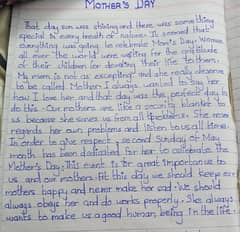 MOTHER'S DAY
That day sun was shining and there was something
special in every breath of nature. It seemed that
everything was going to celebrate Mom's Day. Women
all over the world were waiting for the gratitude
of their children for devoting their life to them.
My mom is not as excepting and she really deserve
to be called Mother. I always wanted to say her
how I love her and that day was the perfect day to
do this. Our mothers are like a security blanket to
us because she saves us from all problems. She never
regards her own problems and listen to us all times.
In order to give respect, second Sunday of May
month has been dedicated for her to celebrate the
Mother's Day. This event is for great importance to
us and our mothers. At this day we should keep our
mothers happy and never make her sad. We should
always obey her and do works properly. She always
wants to make us a good human being in the life.